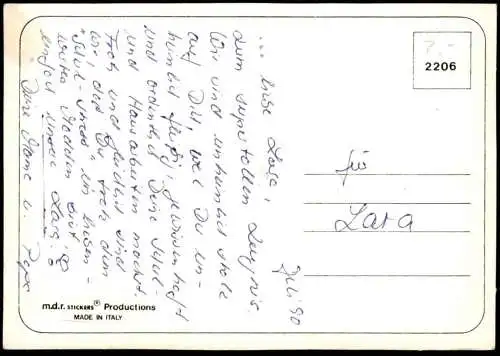 ... liebe Lara,
zum supertollen Zeugnis.
Wir sind unheimlich stolz
auf Dich, weil Du un-
heimlich fleißig, gewissenhaft
und ordentlich Deine Schul-
und Hausarbeiten machst.
Froh und glücklich sind
wir, daß Du trotz dem
"Schul-Streß" ein
liebes Mädchen bist -
einfach unsere Lara!
Deine Mama u. Papa
Juli 90
für
Lara
2206
m.d.r. STICKERS® Productions
MADE IN ITALY